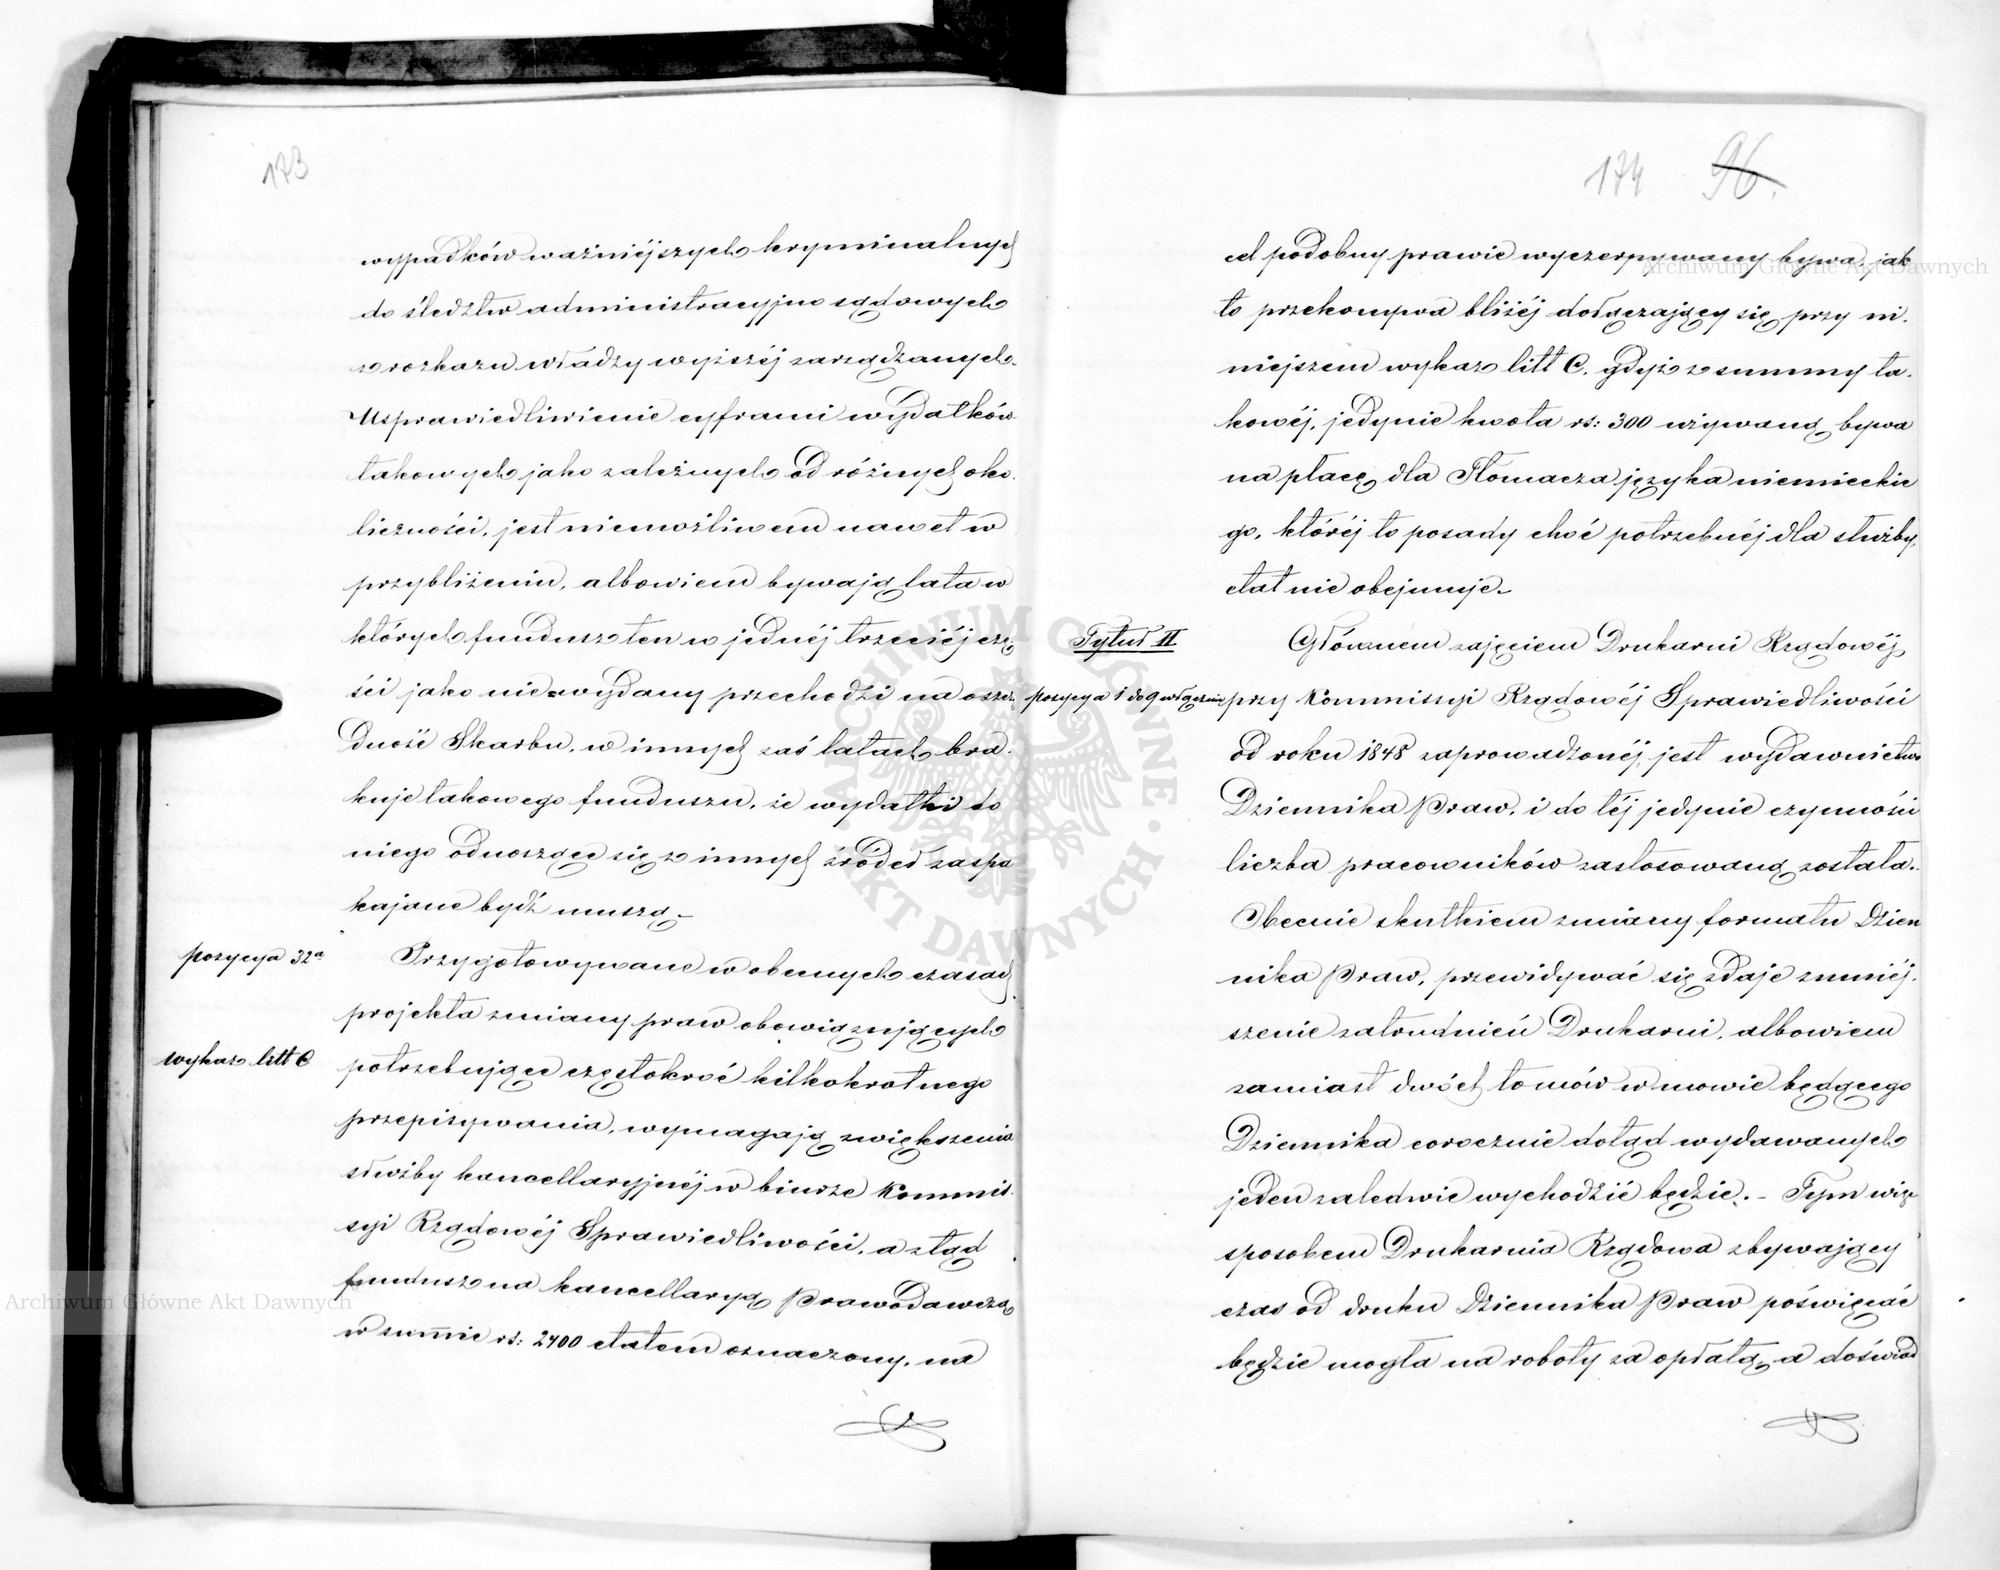 173
wypadków ważniéjszych kryminalnych
do śledztw administracyjno sądowych
z rozkazu władzy wyższéj zarządzanych.
Usprawiedliwienie cyframi wydatków
takowych jako zależnych od różnych oko.
liczności, jest niemożliwem nawet w
przybliżeniu, albowiem bywają lata w
których fundusz ten w jednéj trzeciéj czę
ści jako nie wydany przechodzi na oszczę
dność Skarbu, w innych zaś latach bra.
kuje takowego funduszu, że wydatki do
niego odnoszące się z innych źródeł zaspa
kajane bydź muszą.
pozycya 32a
Przygotowywane w obecnych czasach
projekta zmiany praw obowiązujących
wykaz litt C
potrzebujące częstokroć kilkokrotnego
przepisywania, wymagają zwiększenia
służby kancellaryjnéj w biurze Kommis.
syi Rządowéj Sprawiedliwości, a ztąd
fundusz na kancellaryą Prawodawczą
w summie rs: 2400 etatem oznaczony, na
174 96.
cel podobny prawie wyczerpywany bywa, jak
to przekonywa bliżéj dołączający się przy ni.
niejszem wykaz litt C. gdyż z summy ta.
kowéj, jedynie kwota rs: 300 używaną bywa
na płacę dla Tłomacza języka niemieckie
go, któréj to posady choć potrzebnéj dla służby,
etat nie obejmuje.
Tytuł II
Głównem zajęciem Drukarni Rządowéj
pozycya 1 do 9 włącznie
przy Kommissyi Rządowéj Sprawiedliwości
od roku 1848 zaprowadzonéj, jest wydawnictwo
Dziennika Praw, i do téj jedynie czynności
liczba pracowników zastosowaną została.
Obecnie skutkiem zmiany formatu Dzien
nika Praw, przewidywać się zdaje zmniéj.
szenie zatrudnień Drukarni, albowiem
zamiast dwóch tomów w mowie będącego
Dziennika corocznie dotąd wydawanych
jeden zaledwie wychodzić będzie. - Tym więc
sposobem Drukarnia Rządowa zbywający
czas od druku Dziennika Praw poświęcać
będzie mogła na roboty za opłatą, a doświad
Archiwum Główne Akt Dawnych
Archiwum Główne Akt Dawnych
ARCHIWUM GŁÓWNE AKT DAWNYCH